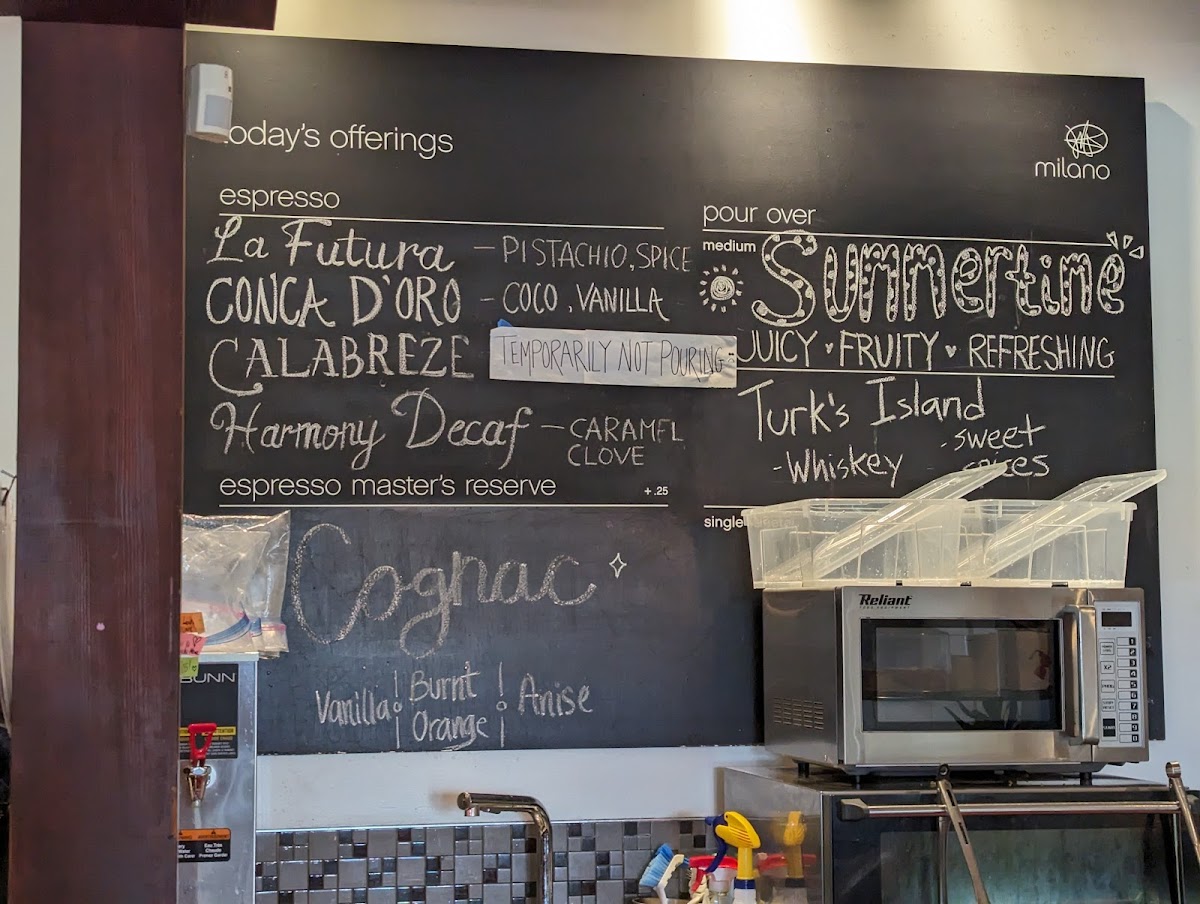 today's offerings
milano
espresso
La Futura – PISTACHIO, SPICE
CONCA D'ORO – COCO, VANILLA
CALABREZE TEMPORARILY NOT POURING
Harmony Decaf – CARAMEL
CLOVE
espresso master's reserve +.25
Cognac
Vanilla Burnt Orange Anise
pour over
medium Summertime
JUICY ♥ FRUITY ♥ REFRESHING
Turk's Island
- Whiskey - sweet
spices
single
Reliant
BUNN
ATTENTION